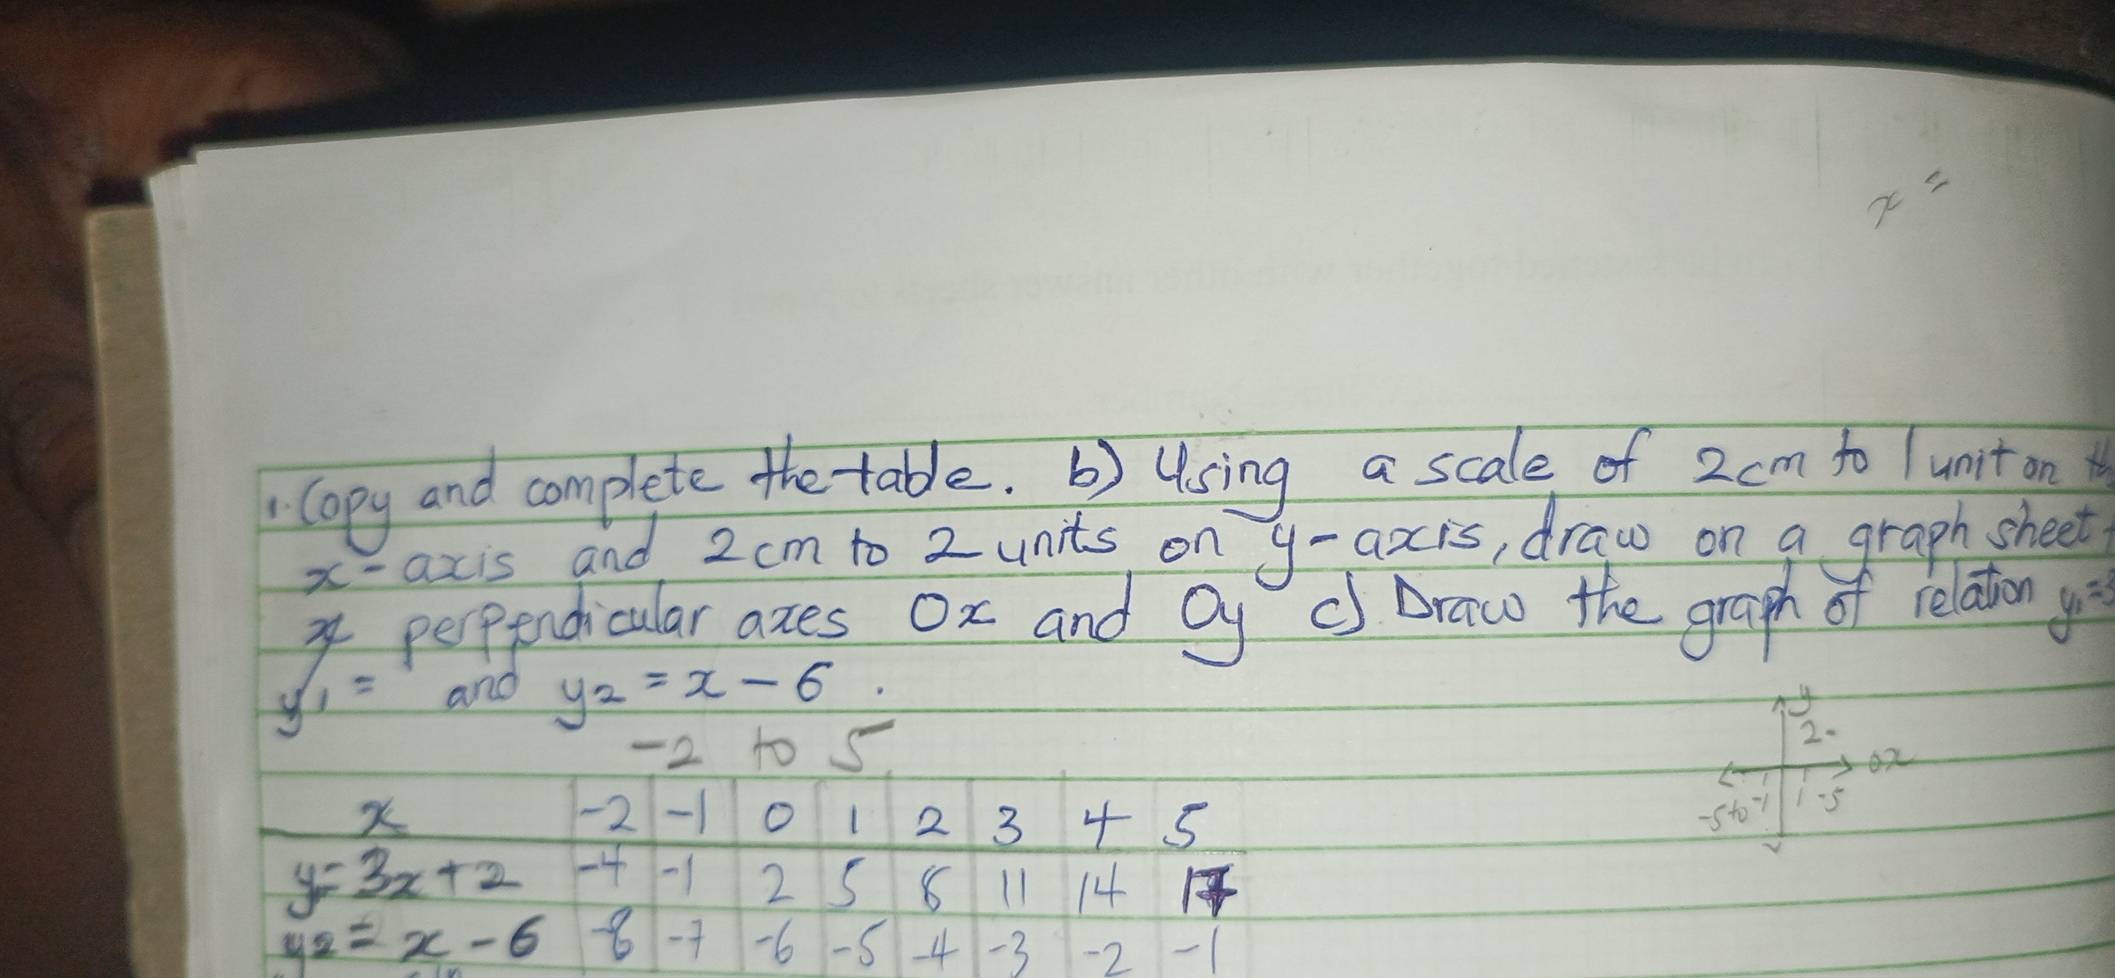 x =
1. Copy and complete the table. b) Using a scale of 2cm to 1 unit on
x-axis and 2cm to 2 units on y-axis, draw on a graph sheet
perpendicular axes Ox and Oy c) Draw the graph of relation y₁=3
y₁ = and y₂ = x - 6 .
-2 to 5
y
2-
0x
-5 to -1 1 -5
x -2 -1 0 1 2 3 4 5
y= 3x+2 -4 -1 2 5 8 11 14 17
y₂ = x - 6 -8 -7 -6 -5 -4 -3 -2 -1